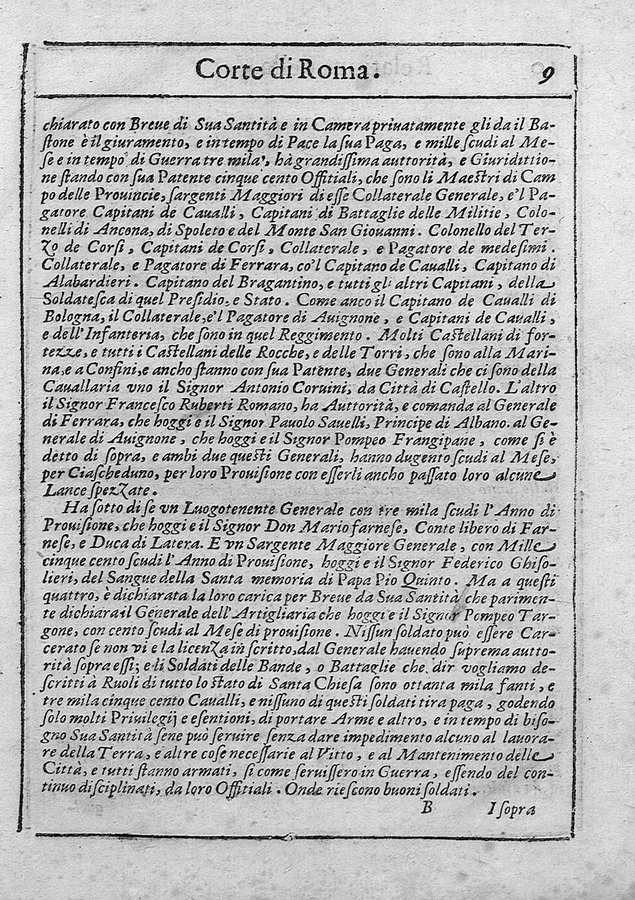 Corte di Roma. 9
chiarato con Breue di Sua Santità e in Camera priuatamente gli da il Ba-
ſtone è il giuramento, e in tempo di Pace la ſua Paga, e mille ſcudi al Me-
ſe e in tempo di Guerra tre mila, hà grandiſſima auttorità, e Giuridittio-
ne ſtando con ſua Patente cinque cento Offitiali, che ſono li Maeſtri di Cam
po delle Prouincie, ſargenti Maggiori di eſſe Collaterale Generale, e'l Pa-
gatore Capitani de Caualli, Capitani di Battaglie delle Militie, Colo-
nelli di Ancona, di Spoleto e del Monte San Giouanni. Colonello del Ter-
zo de Corſi, Capitani de Corſi, Collaterale, e Pagatore de medeſimi.
Collaterale, e Pagatore di Ferrara, co'l Capitano de Caualli, Capitano di
Alabardieri. Capitano del Bragantino, e tutti gl; altri Capitani, della
Soldateſca di quel Preſidio, e Stato. Come anco il Capitano de Caualli di
Bologna, il Collaterale, e'l Pagatore di Auignone, e Capitani de Caualli,
e dell'Infanteria, che ſono in quel Reggimento. Molti Caſtellani di for-
tezze, e tutti i Caſtellani delle Rocche, e delle Torri, che ſono alla Mari-
na, e a Confini, e ancho ſtanno con ſua Patente, due Generali che ci ſono della
Cauallaria vno il Signor Antonio Coruini, da Città di Caſtello. L'altro
il Signor Franceſco Ruberti Romano, ha Auttorità, e comanda al Generale
di Ferrara, che hoggi e il Signor Pauolo Sauelli, Principe di Albano. al Ge-
nerale di Auignone, che hoggi e il Signor Pompeo Frangipane, come ſi è
detto di ſopra, e ambi due queſti Generali, hanno dugento ſcudi al Meſe,
per Ciaſcheduno, per loro Prouiſione con eſſerli ancho paſſato loro alcune
Lance ſpezzate.
Ha ſotto di ſe vn Luogotenente Generale con tre mila ſcudi l'Anno di
Prouiſione, che hoggi e il Signor Don Mario farneſe, Conte libero di Far-
neſe, e Duca di Latera. E vn Sargente Maggiore Generale, con Mille
cinque cento ſcudi l'Anno di Prouiſione, hoggi e il Signor Federico Ghiſo-
lieri, del Sangue della Santa memoria di Papa Pio Quinto. Ma a queſti
quattro, è dichiarata la loro carica per Breue da Sua Santità che parimen-
te dichiara il Generale dell'Artigliaria che hoggi e il Signor Pompeo Tar-
gone, con cento ſcudi al Meſe di prouiſione. Niſſun ſoldato può eſſere Car-
cerato ſe non vi e la licenza in ſcritto, dal Generale hauendo ſuprema autto-
rità ſopra eſſi; e li Soldati delle Bande, o Battaglie che dir vogliamo de-
ſcritti à Ruoli di tutto lo ſtato di Santa Chieſa ſono ottanta mila fanti, e
tre mila cinque cento Caualli, e niſſuno di queſti ſoldati tira paga, godendo
ſolo molti Priuilegij e eſentioni, di portare Arme e altro, e in tempo di biſo-
gno Sua Santità ſene può ſeruire ſenza dare impedimento alcuno al lauora-
re della Terra, e altre coſe neceſſarie al Vitto, e al Mantenimento delle
Città, e tutti ſtanno armati, ſi come ſeruiſſero in Guerra, eſſendo del con-
tinuo diſciplinati, da loro Offitiali. Onde rieſcono buoni ſoldati.
B I ſopra